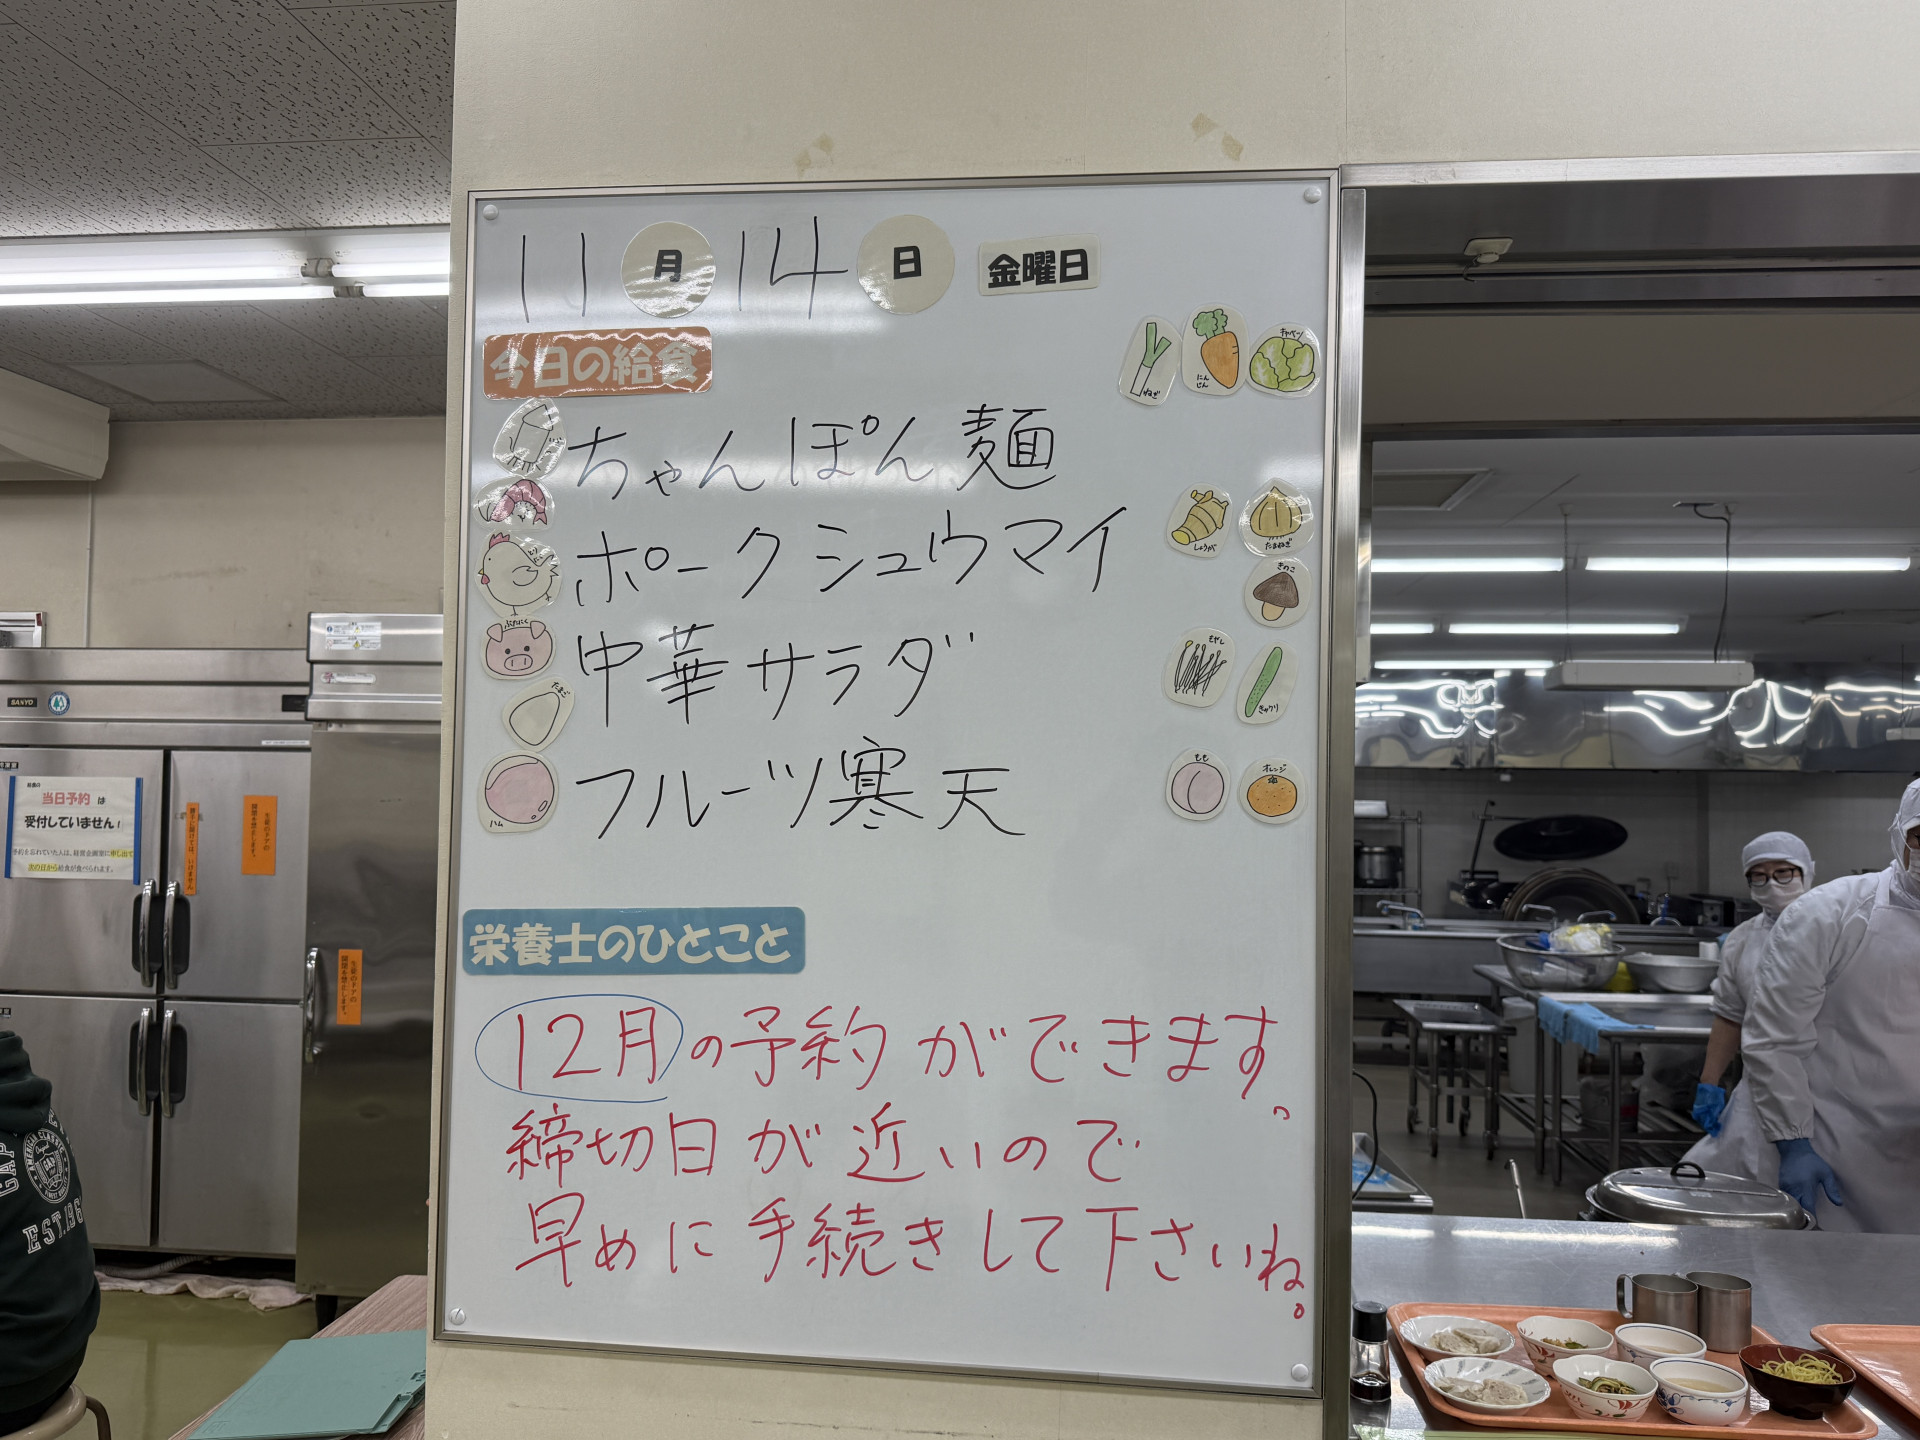 11月14日 金曜日
今日の給食
ねぎ
にんじん
キャベツ
ちゃんぽん麺
とりにく
ポークシュウマイ
しょうが
たまねぎ
きのこ
ぶたにく
中華サラダ
もやし
きゅうり
たまご
フルーツ寒天
ハム
もも
オレンジ
栄養士のひとこと
12月の予約ができます。
締切日が近いので
早めに手続きして下さいね。
SANYO
当日予約は
受付していません!
次の日から給食が食べられます。
GAP
AMERICAN CLASSIC
EST.196